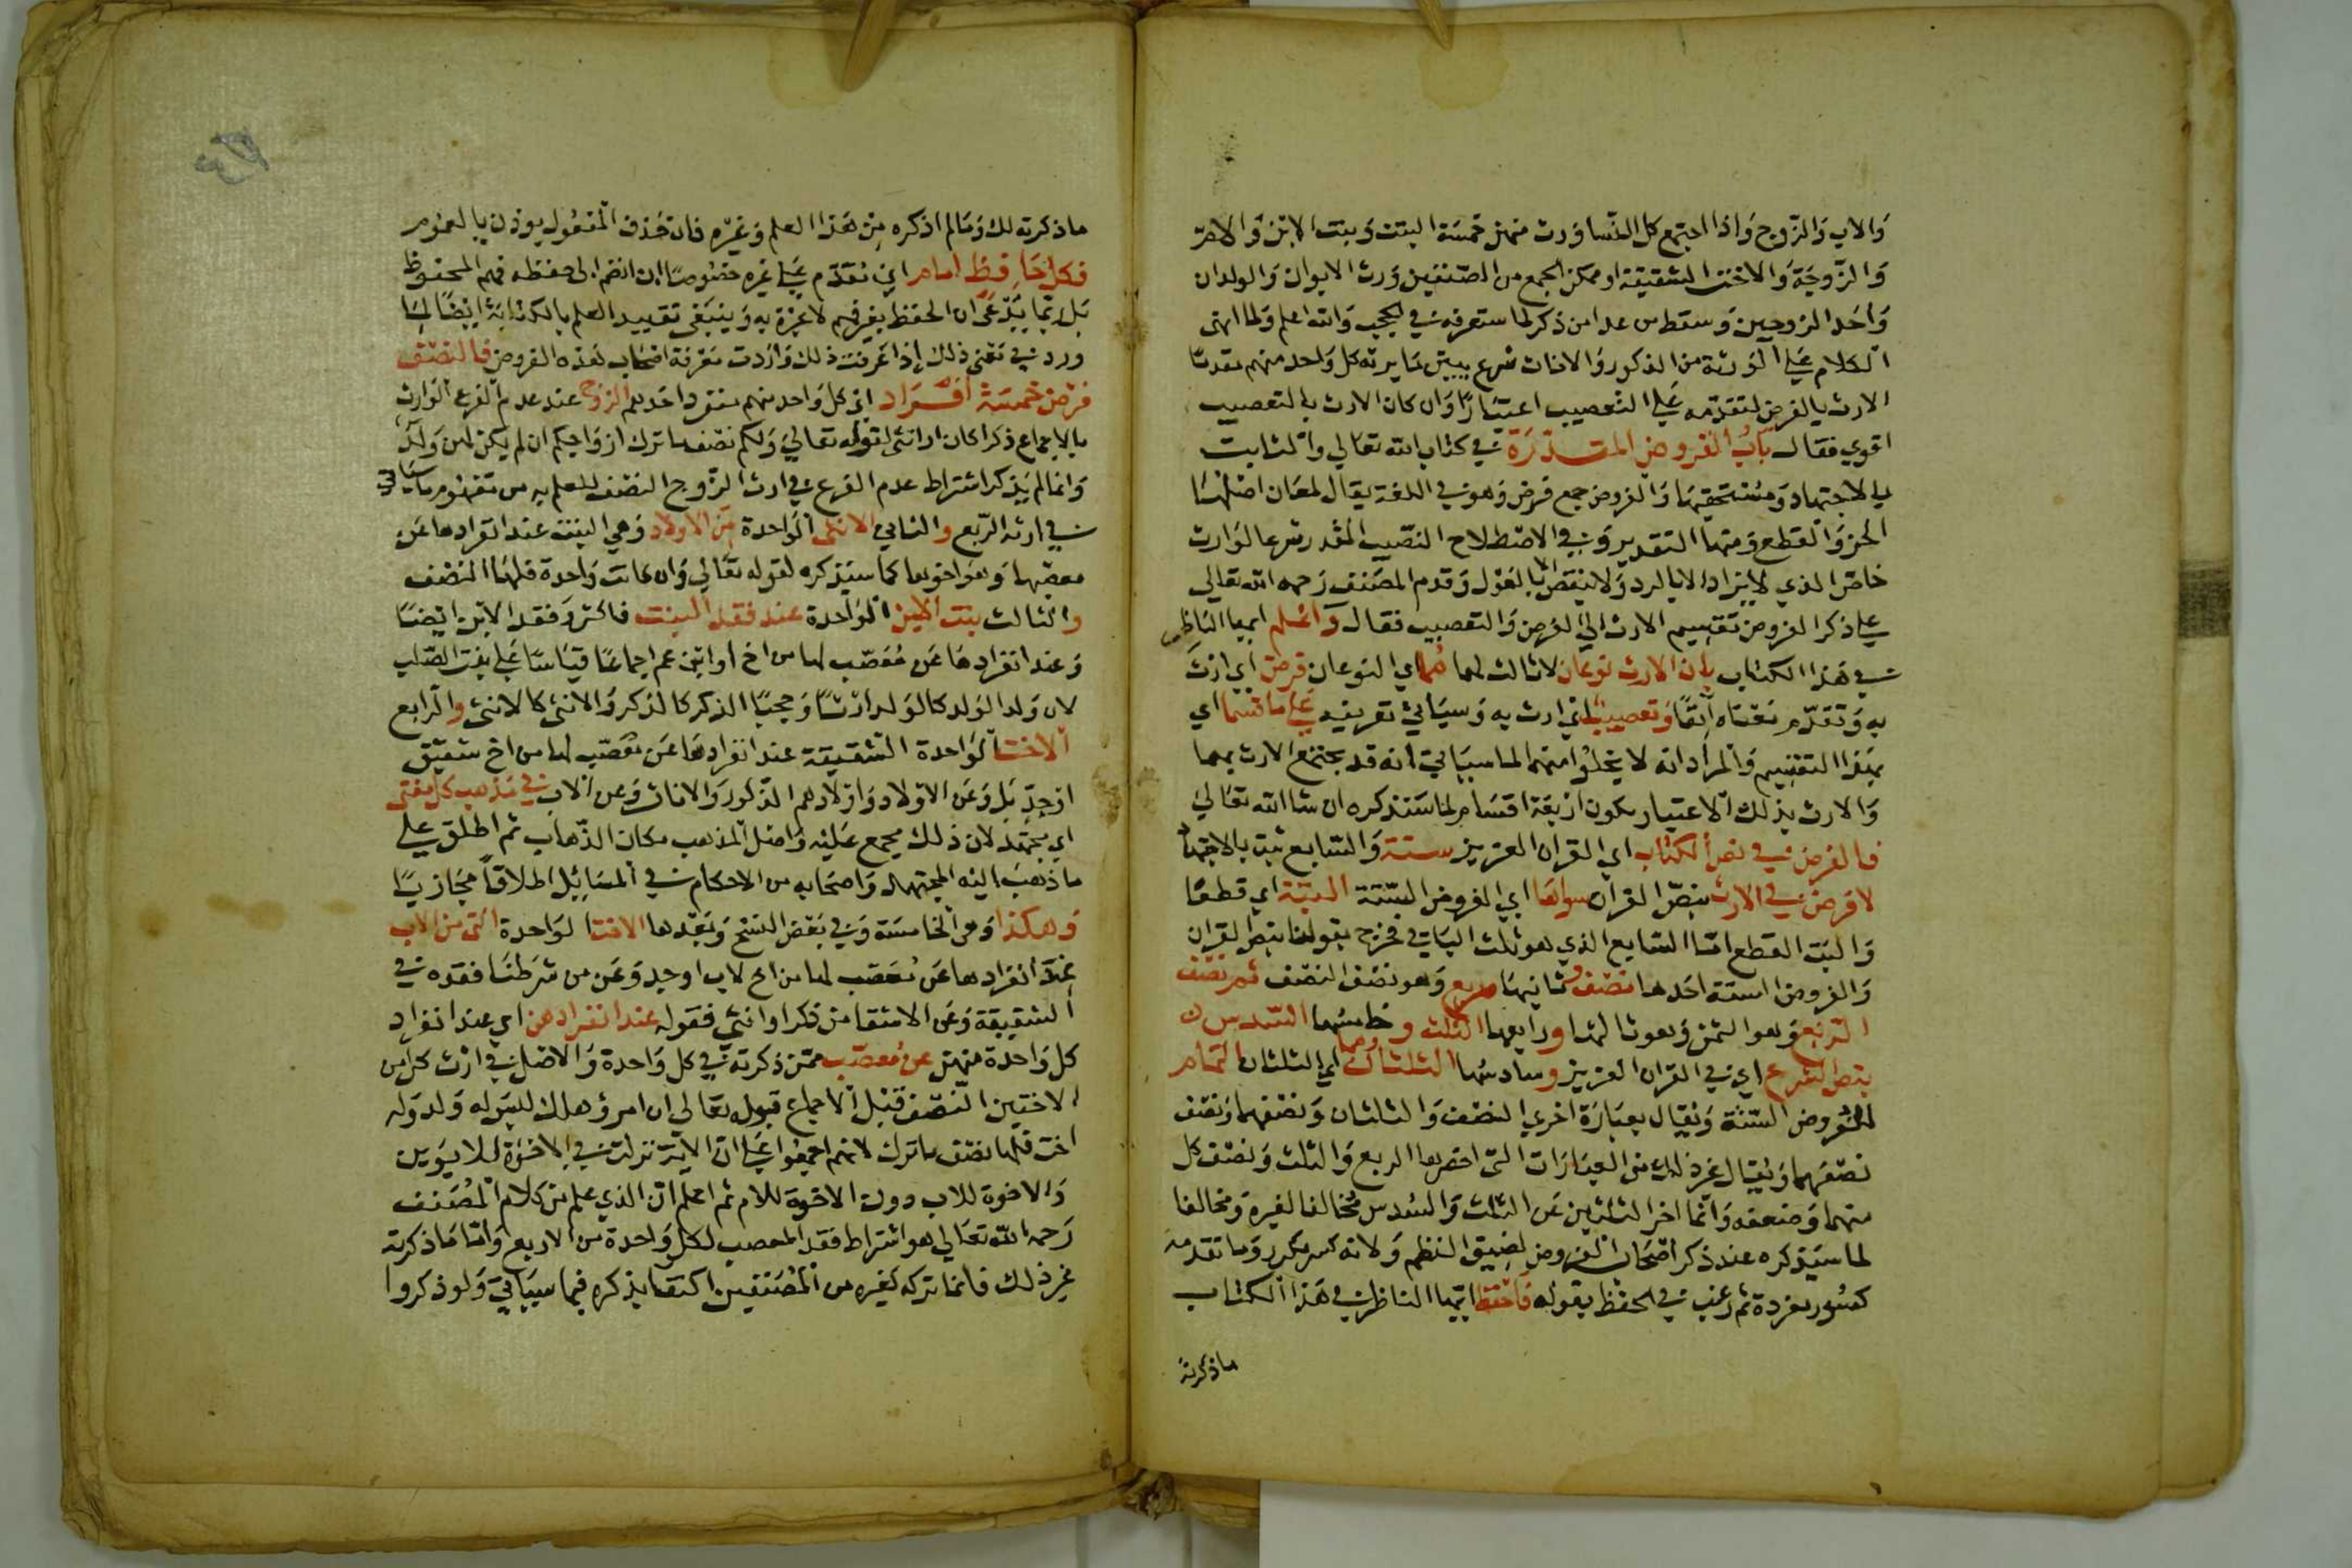 والاب والزوج واذا اجتمع كل النسا ورث منهن خمسة البنت وبنت الابن والام
والزوجة والاخت الشقيقة او ممكن الجمع من الصنفين ورث الابوان والولدان
واحد الزوجين وسقط من عدا من ذكر لما ستعرفه في الحجب والله اعلم ولما انهى
الكلام على الورثة من الذكور والاناث شرع يبين ما يرثه كل واحد منهم مقدما
الارث بالفرض لتقدمه على التعصيب اعتبارا وان كان الارث بالتعصيب
اقوي فقال باب الفروض المقدرة في كتاب الله تعالي والثابت
بالاجتهاد ومستحقيها والفروض جمع فرض وهو في اللغة يقال لمعان اصلها
الحز والقطع ومنها التقدير وفي الاصطلاح النصيب المقدر شرعا لوارث
خاص الذي لا يزاد الا بالرد ولا ينقص الا بالعول وقدم المصنف رحمه الله تعالي
علي ذكر الفروض تقسيم الارث الي الفرض والتعصيب فقال واعلم ايها الناظر
في هذا الكتاب بان الارث نوعان لا ثالث لهما هما اي النوعان فرض اي ارث
به وتقدم معناه آنفا وتعصيب اي ارث به وسياتي تعريفه على ما قسما اي
بهذا التقسيم والمراد انه لا يخلوا منهما لما سياتي انه قد يجتمع الارث بهما
والارث بذلك الاعتبار يكون اربعة اقسام لما ستذكره ان شا الله تعالي
فالفرض في نص الكتاب اي القران العزيز ستة والسابع ثبت بالاجتهاد
لا فرض في الارث بنص القران سواها اي الفروض الستة البتة اي قطعا
والبت القطع اما السابع الذي هو ثلث الباقي فخرج بقولنا بنص القران
والفروض الستة احدها نصف وثانيها ربع وهو نصف النصف ثم نصف
الربع وهو الثمن وهو ثالثها ورابعها الثلث وخامسها السدس
بنص الشرع اي في القران العزيز وسادسها الثلثان وهما اي الثلثان التمام
للفروض الستة ويقال بعبارة اخري النصف والثلثان ونصفهما ونصف
نصفهما ويقال غير ذلك من العبارات التي اخصرها الربع والثلث ونصف كل
منهما وضعفه وانما اخر الثلثين عن الثلث والسدس مخالفا لغيره ومخالفا
لما سيذكره عند ذكر اصحاب الفروض لضيق النظم ولانه كسر مكرر وما تقدمه
كسور مفردة ثم رغب في الحفظ بقوله فاحفظ ايها الناظر في هذا الكتاب
ماذكرته
ما ذكرته لك وما لم اذكره من هذا العلم وغيره فان حذف المفعول يوذن بالعموم
فكل حافظ امام اي مقدم على غيره خصوصا ان انضم الى حفظه فهم المحفوظ
بل ربما يدعى ان الحفظ بغير فهم لا عبرة به وينبغي تقييد العلم بالكتابة ايضا لما
ورد في معنى ذلك إذا عرفت ذلك واردت معرفة اصحاب هذه الفروض فالنصف
فرض خمسة افراد اي كل واحد منهم منفرد احدهم الزوج عند عدم الفرع الوارث
بالاجماع ذكرا كان او انثى لقوله تعالي ولكم نصف ما ترك ازواجكم ان لم يكن لهن ولد
وانما لم يذكر اشتراط عدم الفرع في ارث الزوج النصف للعلم به من مفهوم ما سياتي
في ارثه الربع والثاني الانثى الواحدة من الاولاد وهي البنت عند انفرادها عن
معصبها وهو اخوها كما سيذكره لقوله تعالي وان كانت واحدة فلها النصف
والثالث بنت الابن الواحدة عند فقد البنت فاكثر وفقد الابن ايضا
وعند انفرادها عن معصب لها من اخ او ابن عم اجماعا قياسا علي بنت الصلب
لان ولد الولد كالولد ارثا وحجبا الذكر كالذكر والانثى كالانثى والرابع
الاخت الواحدة الشقيقة عند انفرادها عن معصب لها من اخ شقيق
او جد بل وعن الاولاد واولادهم الذكور والاناث وعن الاب في مذهب كل مفتي
اي مجتهد لان ذلك مجمع عليه واصل المذهب مكان الذهاب ثم اطلق علي
ما ذهب اليه المجتهد واصحابه من الاحكام في المسائل اطلاقا مجازيا
وهكذا وهي الخامسة وفي بعض النسخ وبعدها الاخت الواحدة التي من الاب
عند انفرادها عن معصب لها من اخ لاب او جد وعن من شرطنا فقده في
الشقيقة وعن الاشقا من ذكر او انثى فقوله عند انفرادهن اي عند انفراد
كل واحدة منهن عن معصب ممن ذكرته في كل واحدة والاصل في ارث كل من
الاختين النصف قبل الاجماع قوله تعالي ان امرؤ هلك ليس له ولد وله
اخت فلها نصف ما ترك لانهم اجمعوا على ان الاية نزلت في الاخوة للابوين
والاخوة للاب دون الاخوة للام ثم اعلم ان الذي علم من كلام المصنف
رحمه الله تعالي هو اشتراط فقد المعصب لكل واحدة من الاربع واما ما ذكرته
غير ذلك فانما تركه كغيره من المصنفين اكتفا بذكره فيما سياتي ولو ذكروا